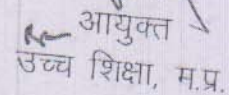 आयुक्त
उच्च शिक्षा, म.प्र.